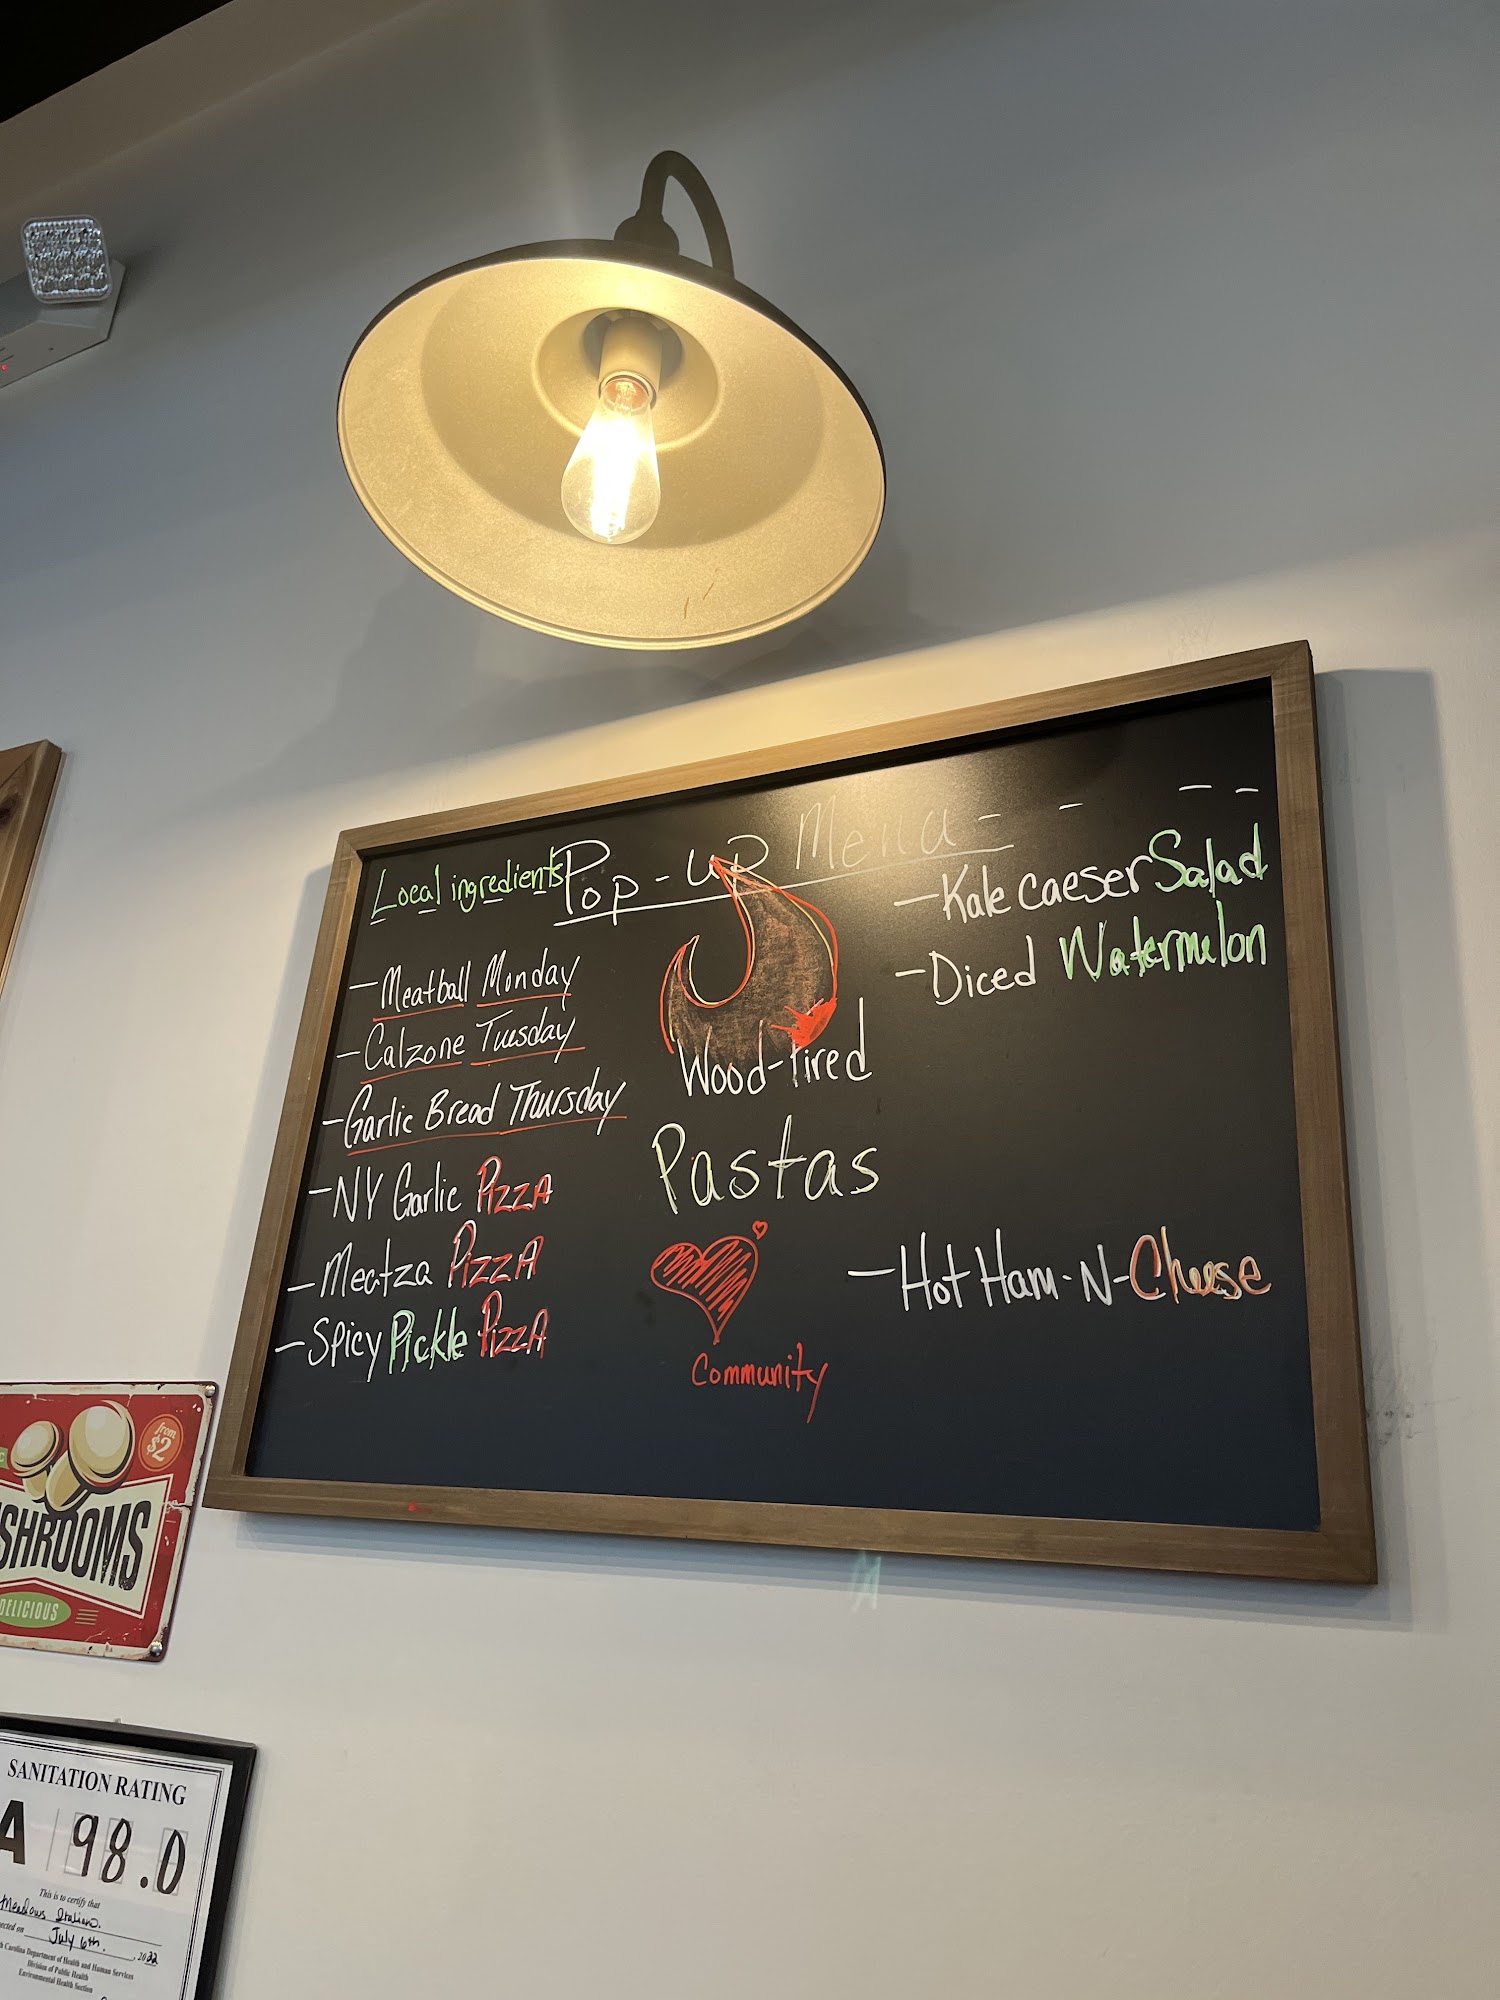 Local ingredients
Pop-up Menu
- Meatball Monday
- Calzone Tuesday
- Garlic Bread Thursday
- NY Garlic PIZZA
- Meatza PIZZA
- Spicy Pickle PIZZA
Wood-fired
Pastas
Community
- Kale caeser Salad
- Diced Watermelon
- Hot Ham-N-Cheese
from
$2
SHROOMS
DELICIOUS
SANITATION RATING
A 98.0
This is to certify that
Meadows Italian.
July 6th. , 2022
Carolina Department of Health and Human Services
Division of Public Health
Environmental Health Section